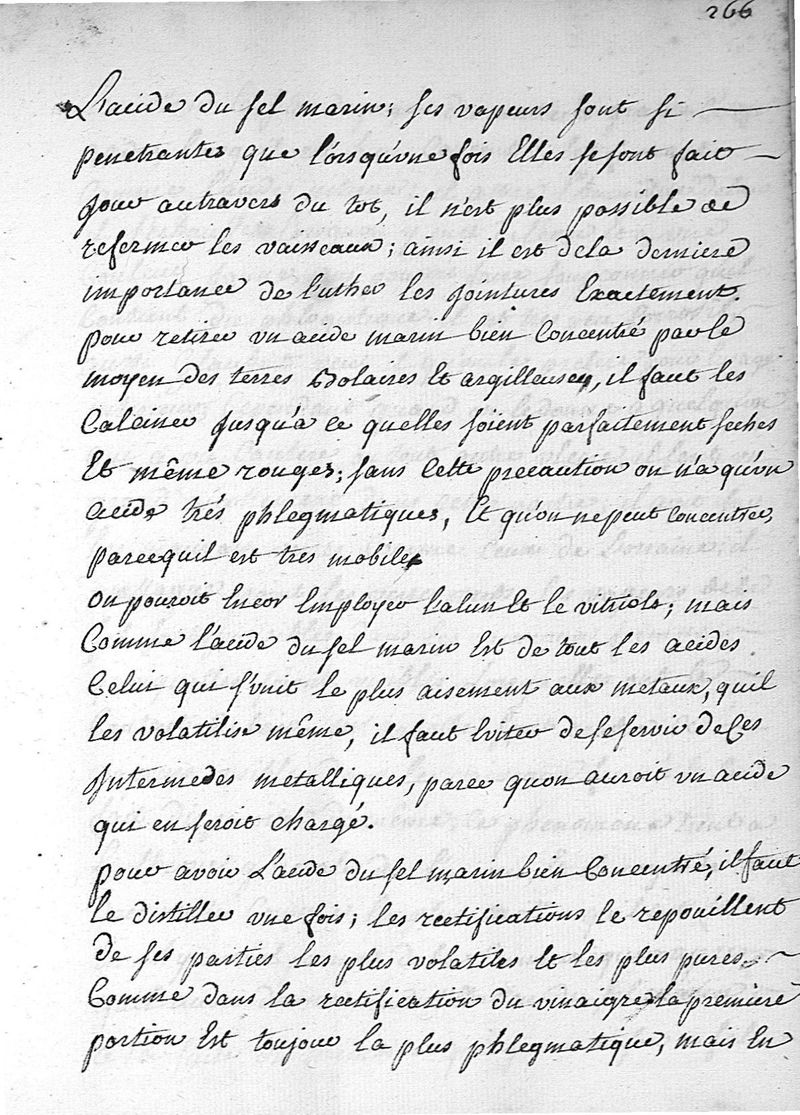 266
L'acide du sel marin; ses vapeurs sont si
penetrantes que lorsqu'une fois Elles se sont fait
jour autravers du lut, il n'est plus possible de
refermer les vaisseaux; ainsi il est dela derniere
importance de luther les jointures Exactement.
pour retirer un acide marin bien Concentré par le
moyen des terres Bolaires Et argilleuses, il faut les
Calciner jusqu'à ce quelles soient parfaitement seches
Et même rouges; sans Cette precaution on n'a qu'un
acide trés phlegmatique, Et qu'on ne peut Concentrer,
parcequil est tres mobile.
on pouroit Encor Employer l'alun Et le vitriole; mais
Comme l'acide du sel marin Est de tout les acides
Celui qui s'unit le plus aisement aux metaux, quil
les volatilise même, il faut Eviter de se servir de Ces
Intermedes metalliques, parce quon auroit un acide
qui en seroit chargé.
pour avoir L'acide du sel marin bien Concentré, il faut
le distiller une fois; les rectifications le repouillent
de ses parties les plus volatiles Et les plus pures.
Comme dans la rectification du vinaigre la premiere
portion Est toujour la plus phlegmatique, mais En